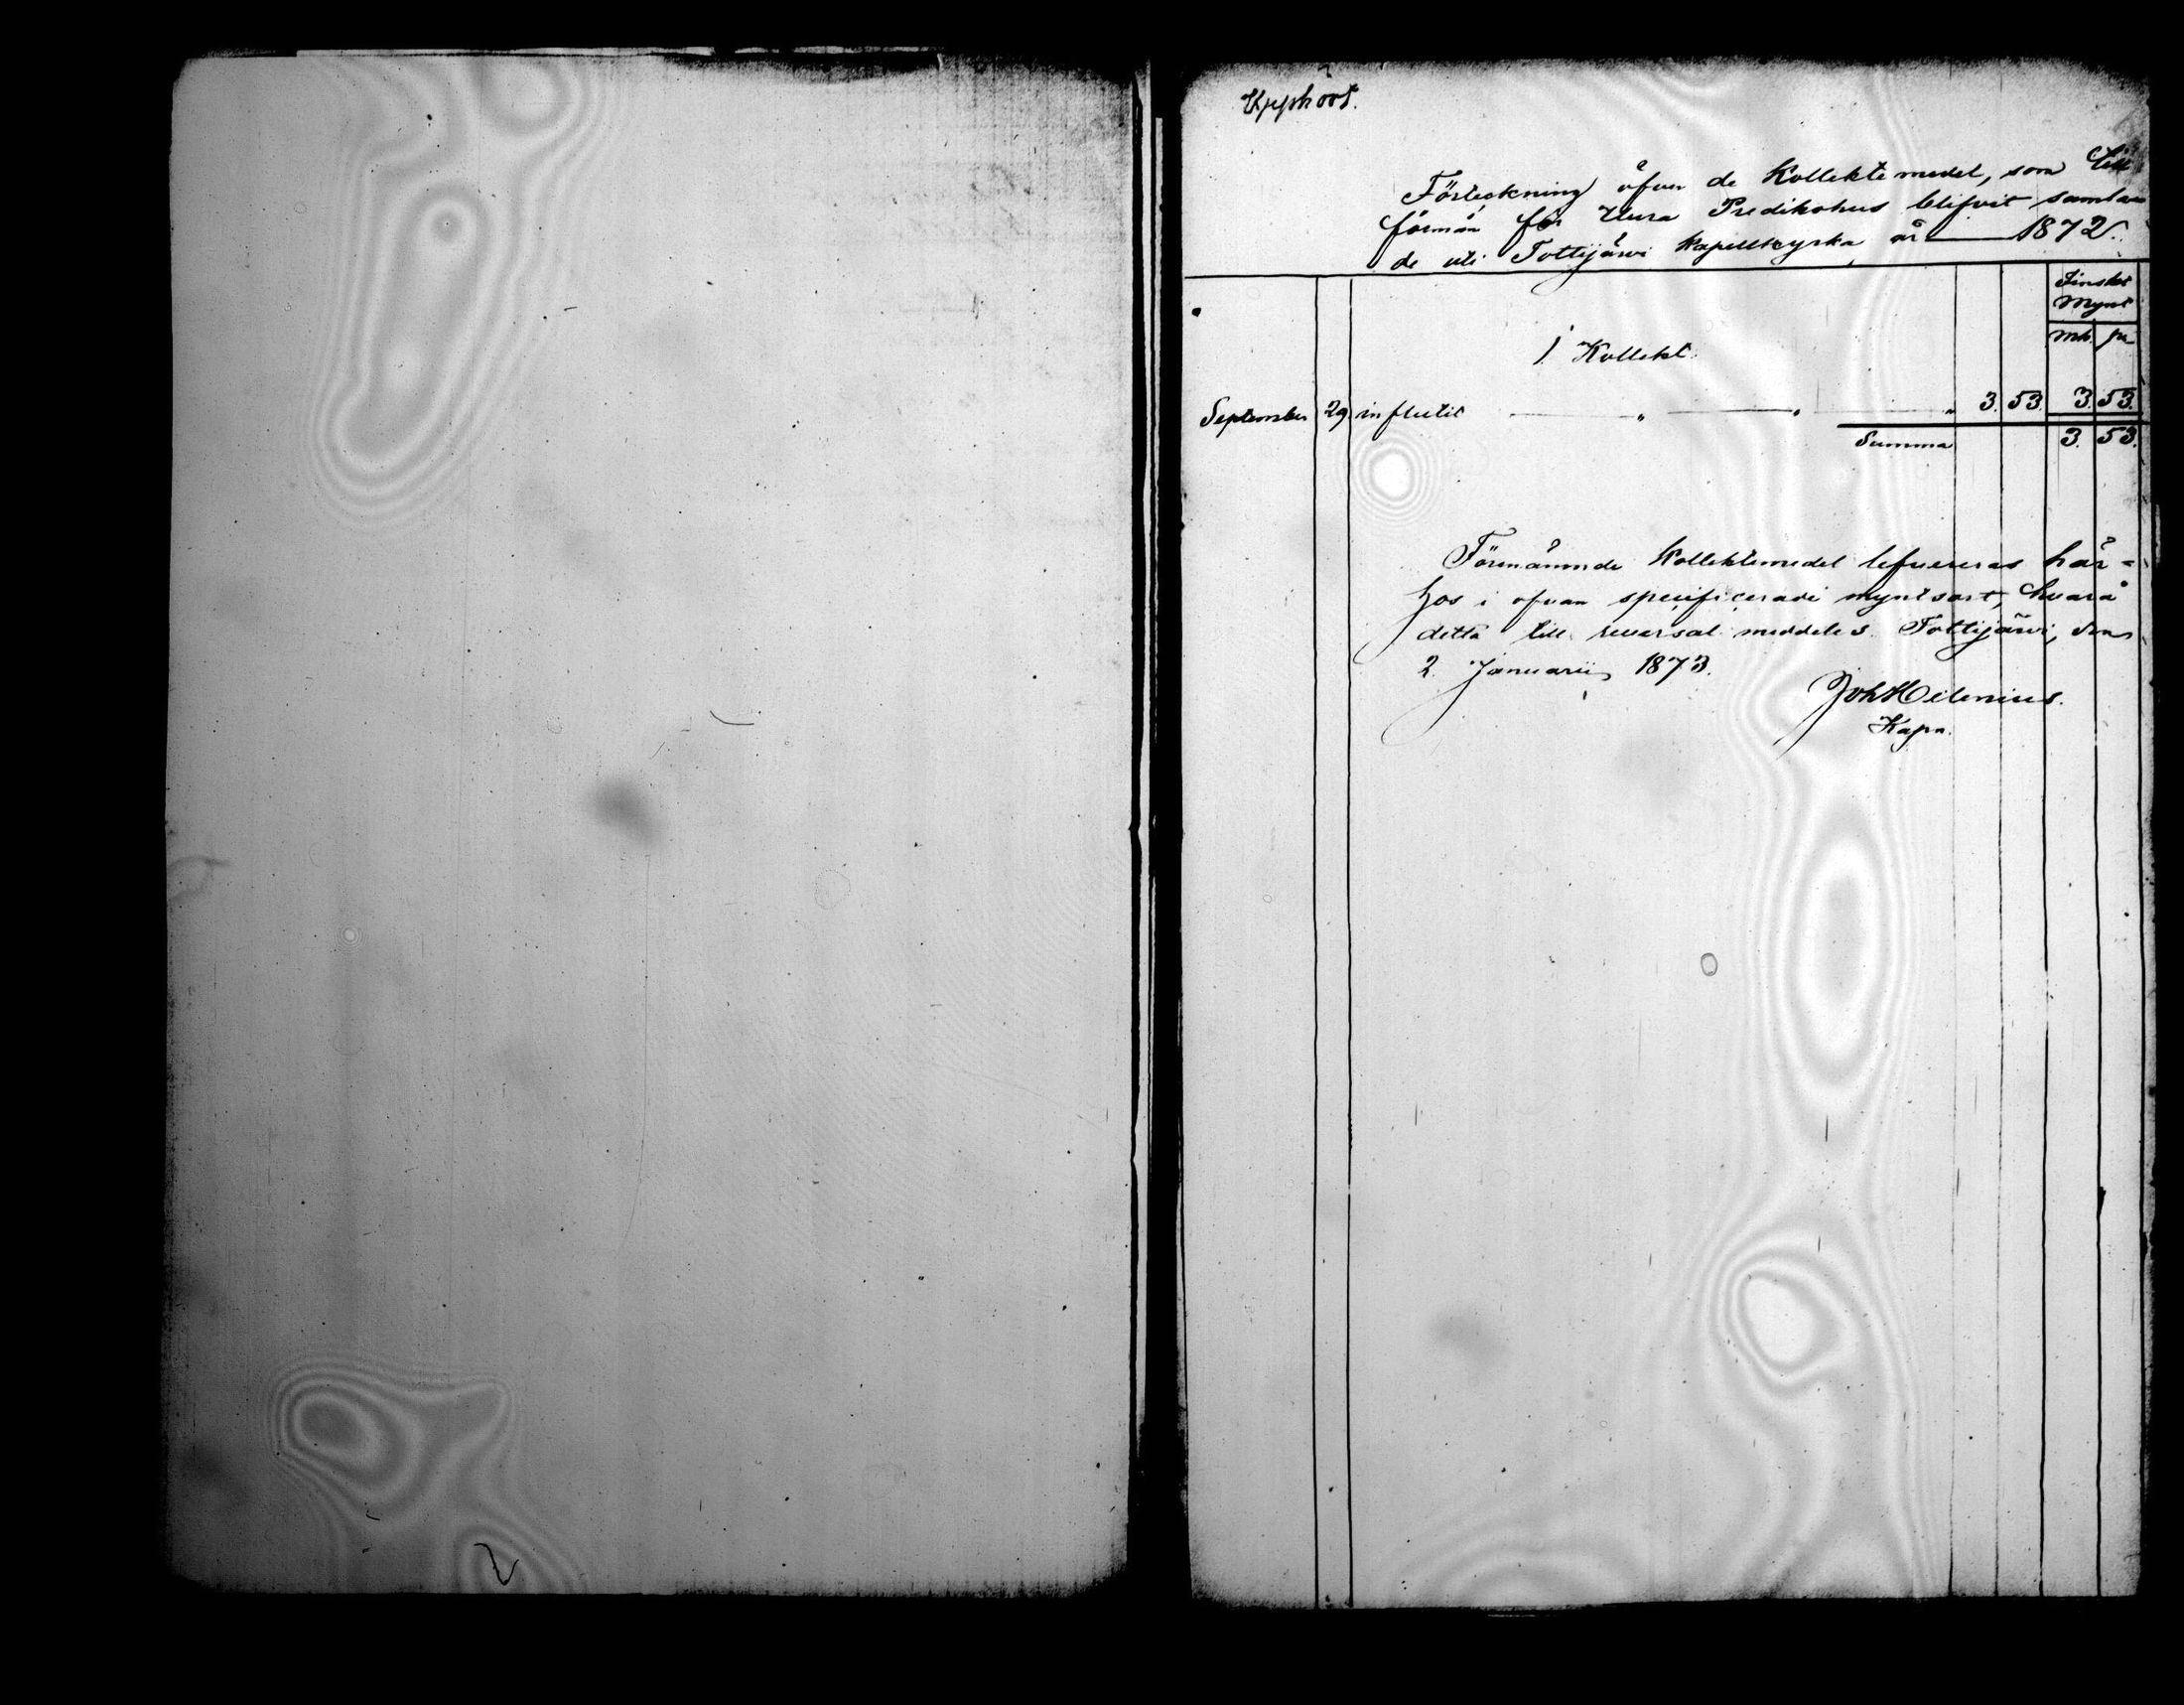 Förteckning öfver de Kollektemedel, som till
förmån för Ulvsa Predikohus blifvit samlan
de uti Tottijärvi Kapellkyrka år 1872.
Finskt
Mynt
mk. pi
1 Kollekt.
September 29. influtit " " " 3. 53. 3. 53.
Summa 3. 53.
Förenämnde Kollektemedel lefvereras här-
hos i ofvan specificerade myntsort, hvarå
detta till reversal meddeles. Tottijärvi, den
2 Januarii 1873.
Joh Helenius.
Kapn.